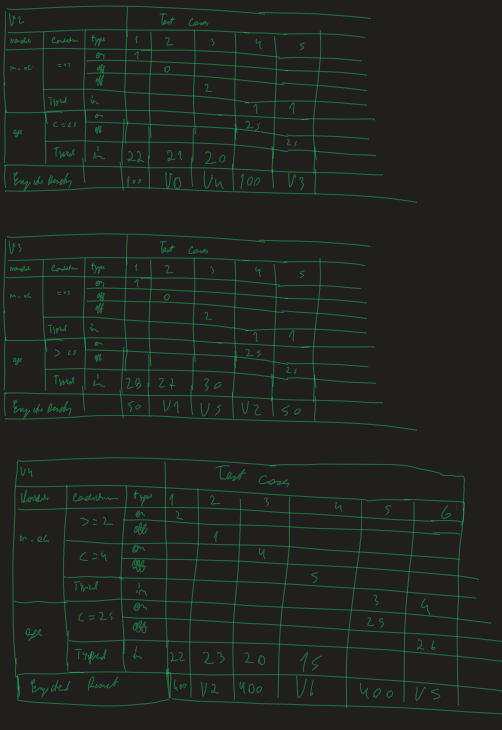 V2 Test Cases
Condition type 1 2 3 4 5
on 1
m. == 1 off 0
off 2
Typical in 1 1
on 25
age <= 25 off 25
Typical in 22 21 20
Expected Result 100 V0 V4 100 V3
V3 Test Cases
Condition type 1 2 3 4 5
on 1
m. == 1 off 0
off 2
Typical in 1 1
on 25
age > 25 off 25
Typical in 28 27 30
Expected Result 50 V1 V5 V2 50
V4 Test Cases
Condition type 1 2 3 4 5 6
>= 2 on 2
off 1
m. <= 4 on 4
off
Typical in 5 3 4
<= 25 on 25
age off 26
Typical in 22 23 20 15
Expected Result 400 V2 400 V6 400 V5